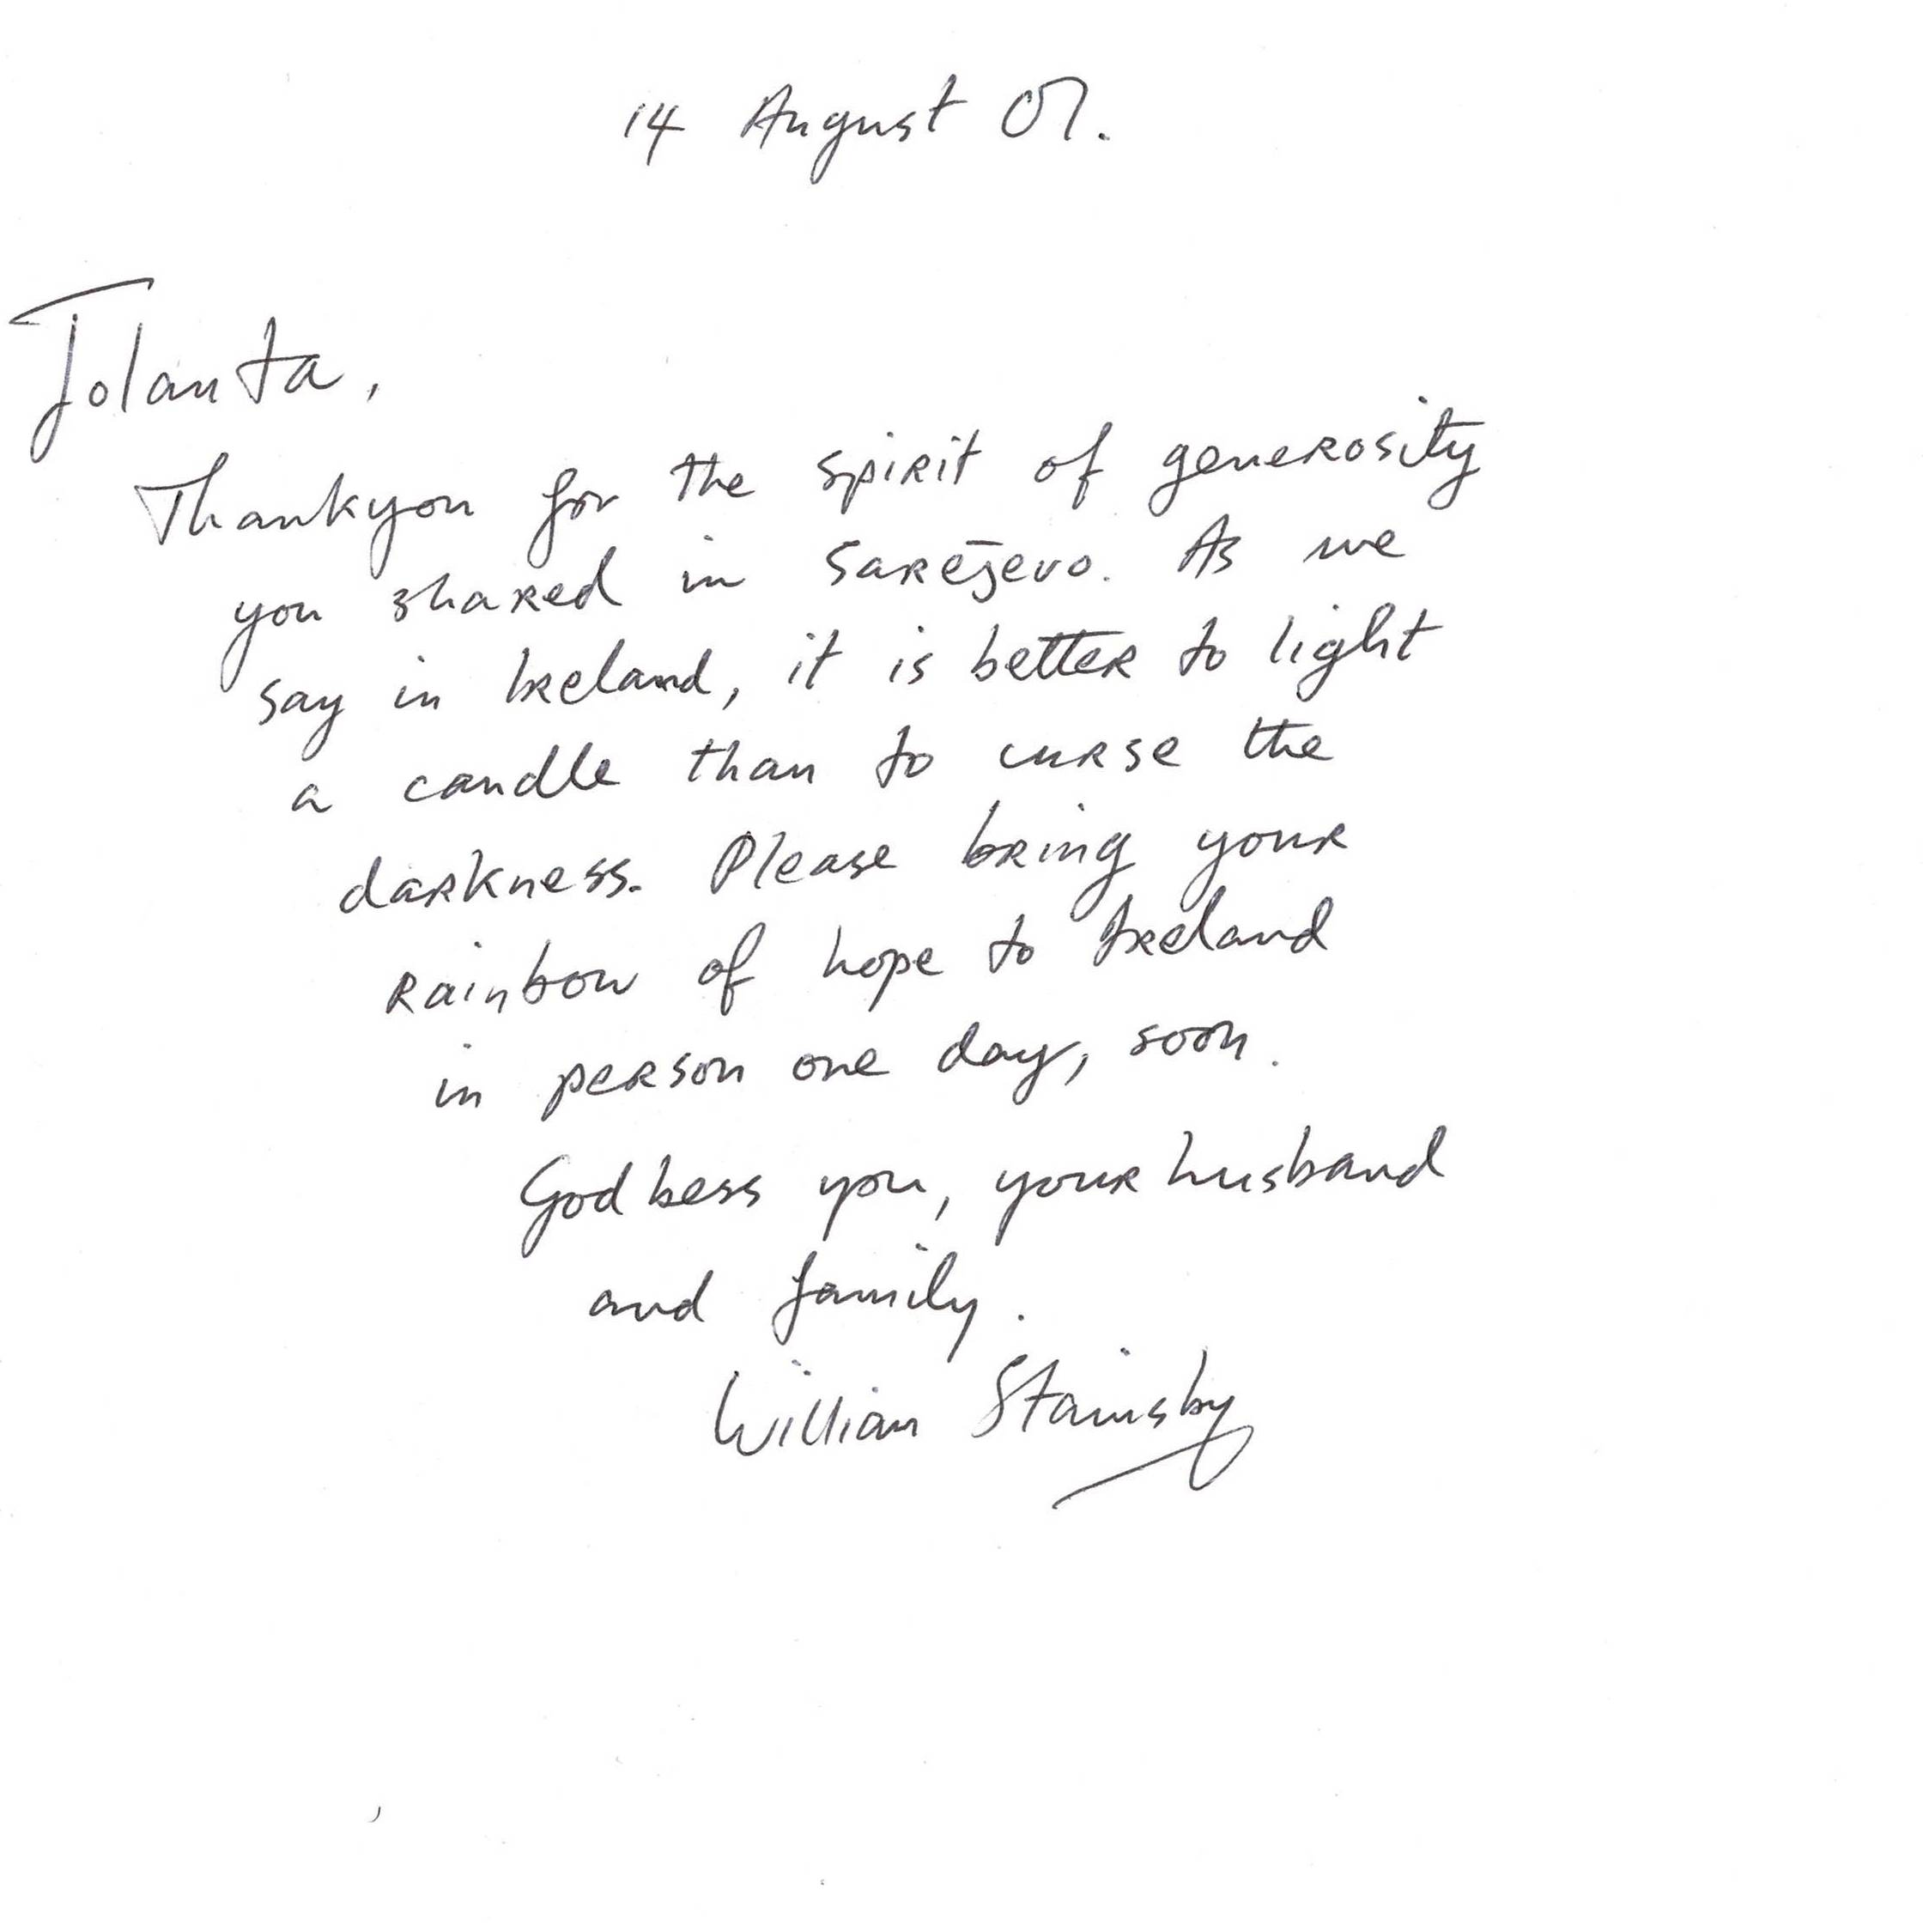 14 August 07.
Jolanta,
Thankyou for the spirit of generosity
you shared in Sarejevo. As we
say in Ireland, it is better to light
a candle than to curse the
darkness. Please bring your
rainbow of hope to Ireland
in person one day, soon.
God bess you, your husband
and family.
William Stainsby